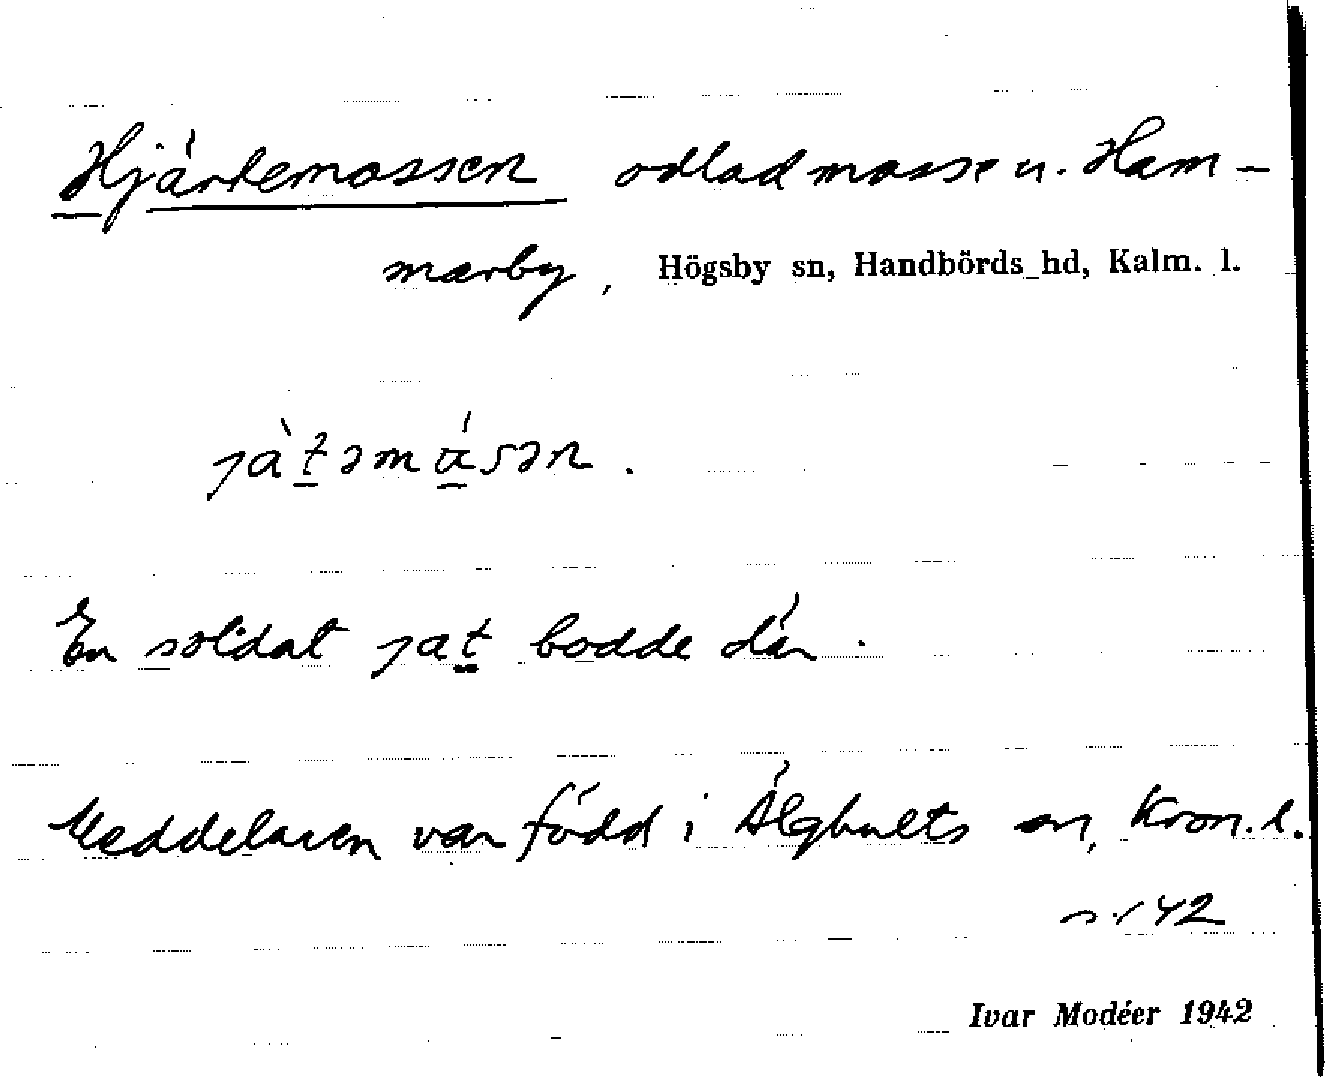 Hjärtemossen odlad mosse n. Ham-
marby, Högsby sn, Handbörds hd, Kalm. l.
jàt̠əmɑ̠́sən.
En soldat jat̠ bodde där.
Meddelaren var född i Älghults sn, Kron. l.
42
Ivar Modéer 1942